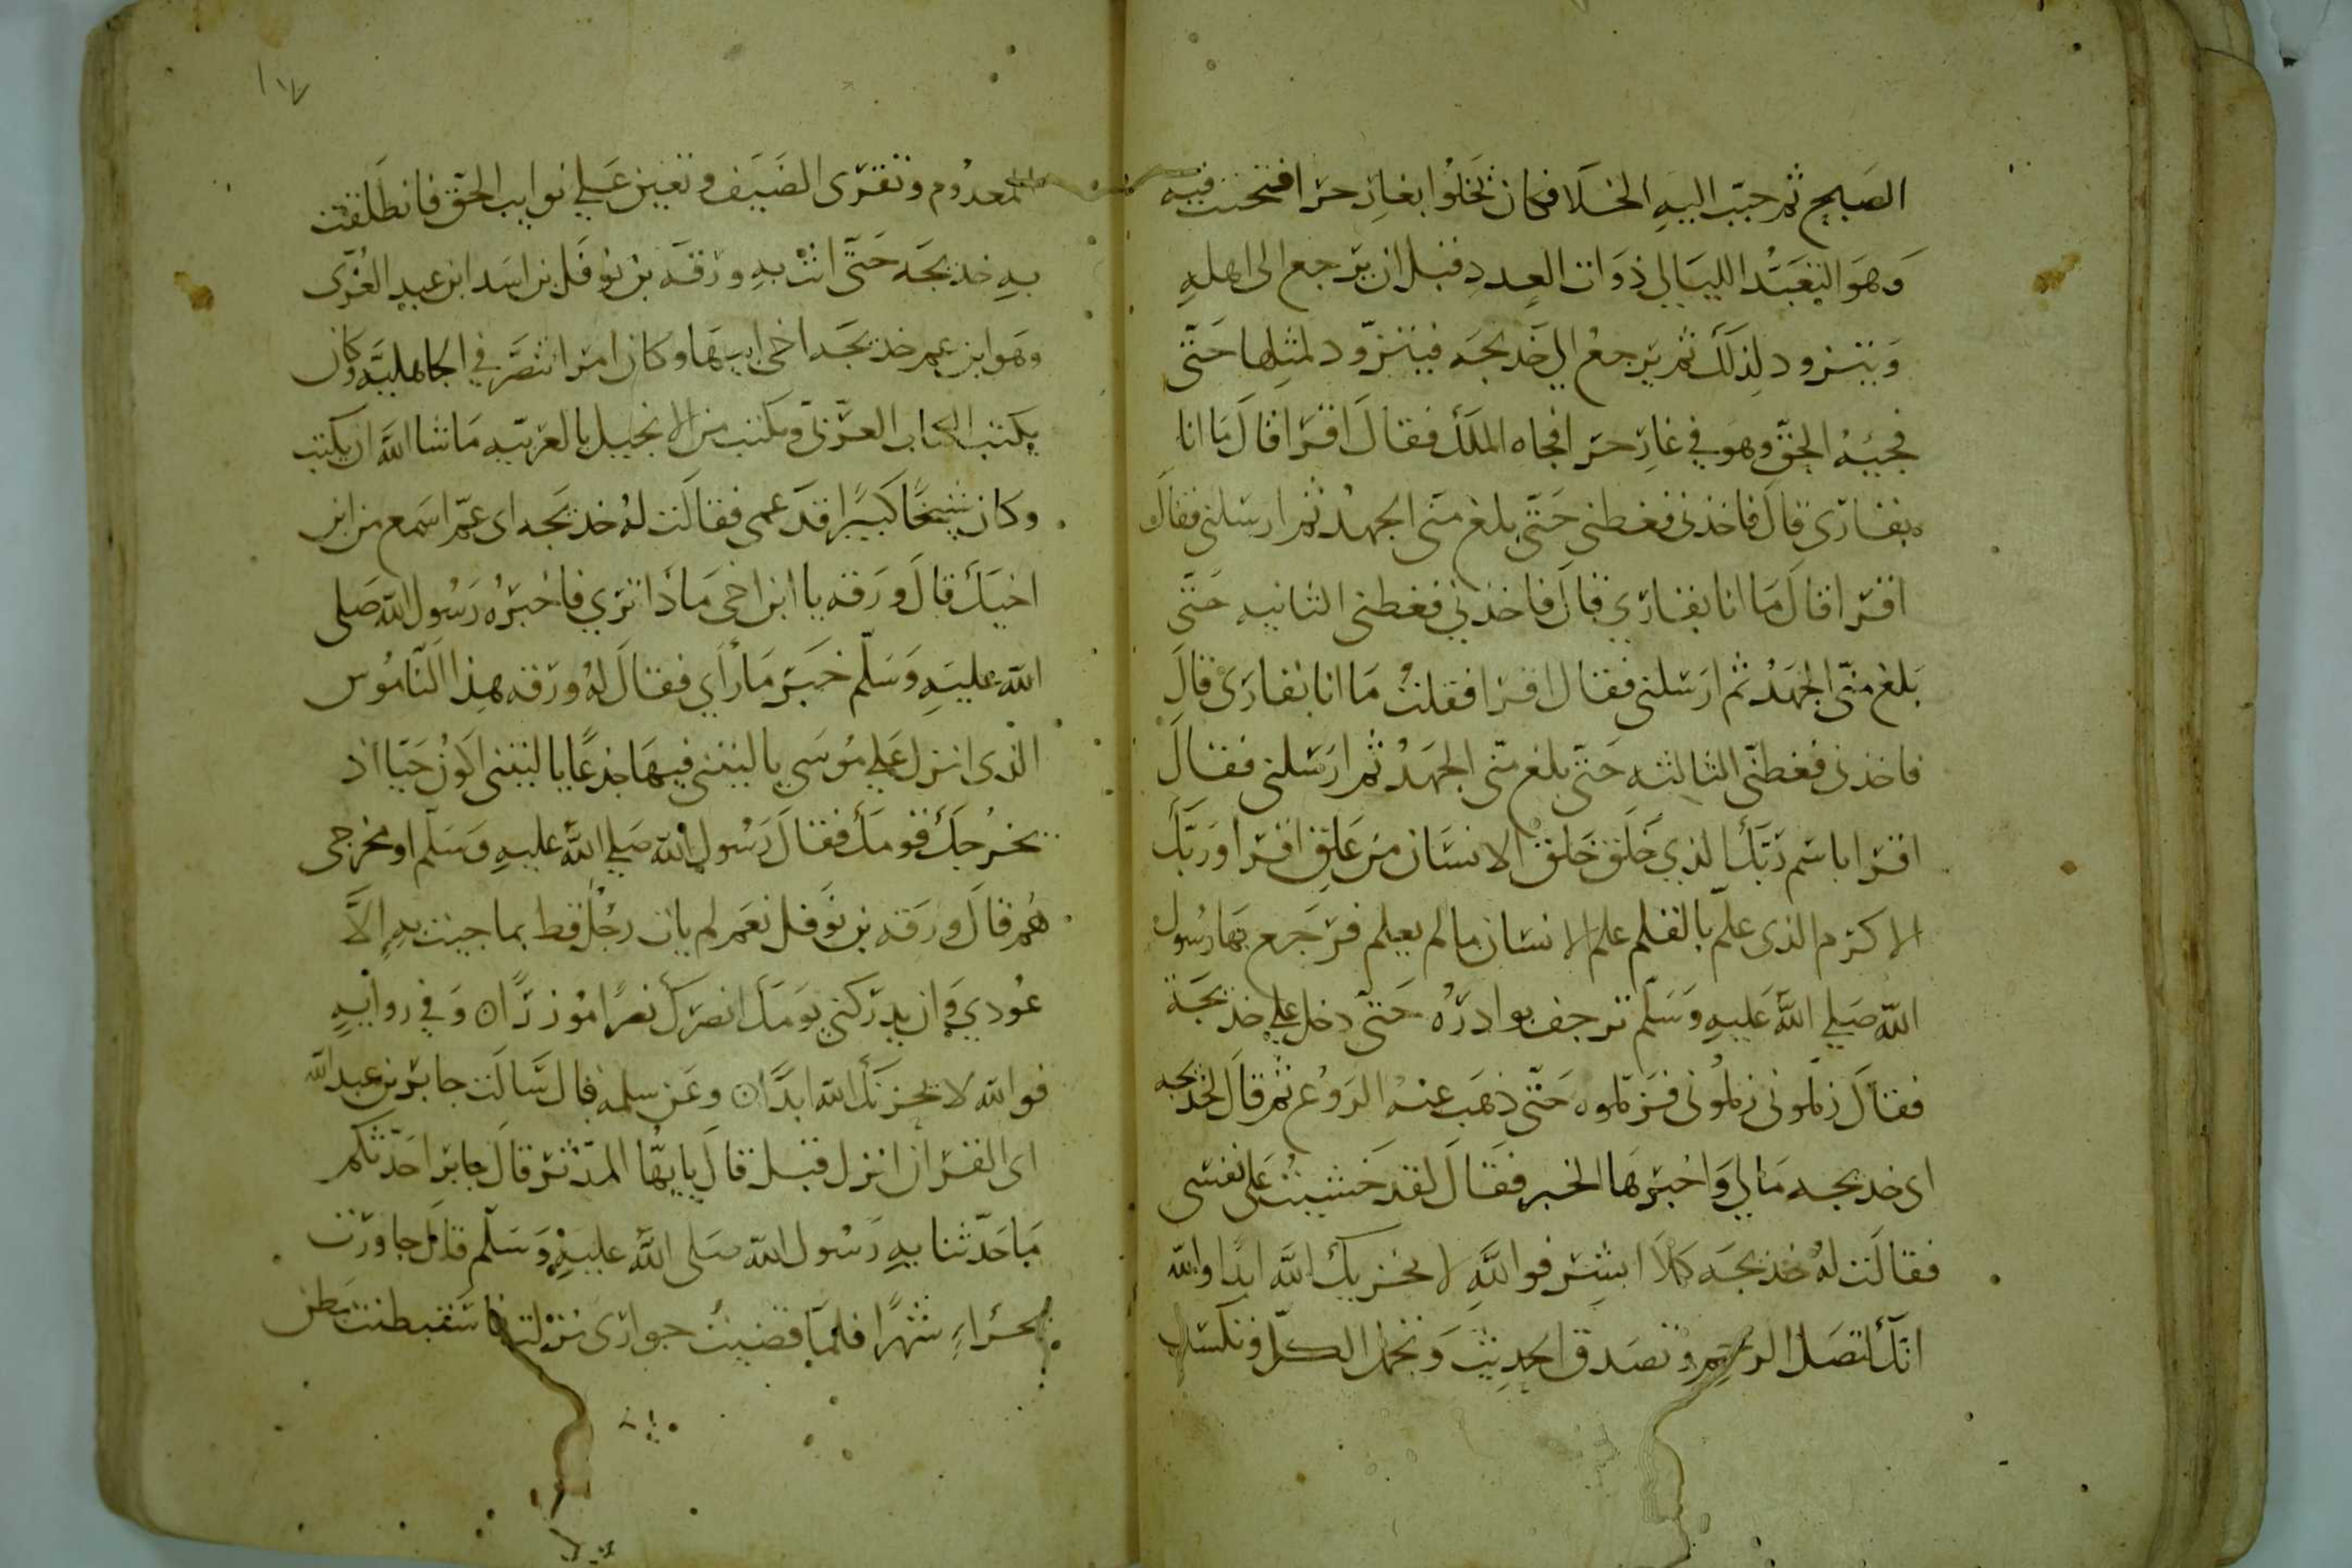 الصبح ثم حبب اليه الخلا فكان يخلوا بغار حرا فيتحنث فيه
وهو التعبد الليالي ذوات العدد قبل ان يرجع الى اهله
ويتزود لذلك ثم يرجع الي خديجه فيتزود لمثلها حتى
فجيه الحق وهو في غار حرا فجاه الملك فقال اقرا قال ما انا
بقارى قال فاخذنى فغطنى حتى بلغ منى الجهد ثم ارسلنى فقال
اقرا قال ما انا بقاري قال فاخذني فغطنى الثانيه حتى
بلغ منى الجهد ثم ارسلنى فقال اقرا فقلت ما انا بقارى قال
فاخذنى فغطنى الثالثه حتى بلغ منى الجهد ثم ارسلنى فقال
اقرا باسم ربك الذي خلق خلق الانسان من علق اقرا وربك
الاكرم الذى علم بالقلم علم الانسان ما لم يعلم فرجع بها رسول
الله صلي الله عليه وسلم ترجف بوادره حتى دخل علي خديجة
فقال زملونى زملونى فزملوه حتى ذهب عنه الروع ثم قال لخديجه
اى خديجه مالي واخبرها الخبر فقال لقد خشيت على نفسى
فقالت له خديجه كلا ابشر فوالله لا يخزيك الله ابدا والله
انك لتصل الرحم وتصدق الحديث وتحمل الكل وتكسب
المعدوم وتقرى الضيف وتعين علي نوايب الحق فانطلقت
به خديجه حتى اتت به ورقه بن نوفل بن اسد ابن عبد العزى
وهو ابن عم خديجه اخى ابيها وكان امرا تنصر في الجاهليه وكان
يكتب الكتاب العربى ويكتب من الانجيل بالعربيه ما شا الله ان يكتب
وكان شيخا كبيرا قد عمى فقالت له خديجه اى عم اسمع من ابن
اخيك قال ورقه يا ابن اخى ماذا تري فاخبره رسول الله صلى
الله عليه وسلم خبر ما رأي فقال له ورقه هذا الناموس
الذى انزل علي موسي يا ليتنى فيها جذعا يا ليتنى اكون حيا اذ
يخرجك قومك فقال رسول الله صلي الله عليه وسلم او مخرجى
هم قال ورقه بن نوفل نعم لم يات رجل قط بما جيت به الا
عودي وان يدركنى يومك انصرك نصرا موزرا ٥ وفي روايه
فوالله لا يحزنك الله ابدا ٥ وعن سلمه قال سالت جابر بن عبد الله
اى القران انزل قبل قال يا ايها المدثر قال جابر احدثكم
ما حدثنا به رسول الله صلى الله عليه وسلم قال جاورت
بحراء شهرا فلما قضيت جوارى نزلت فاستبطنت بطن